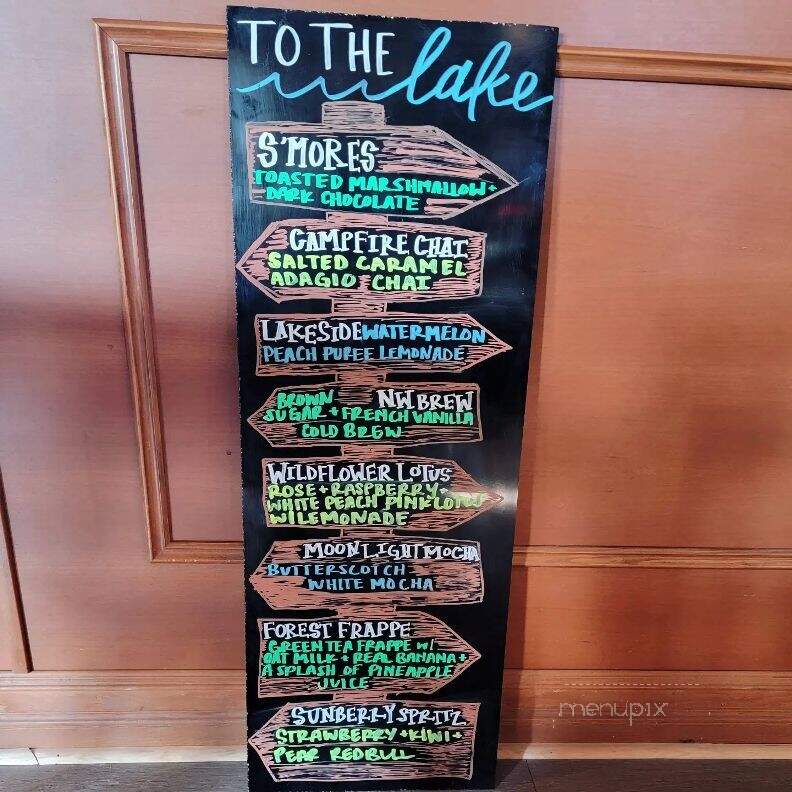 TO THE lake
S'MORES
TOASTED MARSHMALLOW +
DARK CHOCOLATE
CAMPFIRE CHAI
SALTED CARAMEL
ADAGIO CHAI
LAKESIDE WATERMELON
PEACH PUREE LEMONADE
BROWN NW BREW
SUGAR + FRENCH VANILLA
COLD BREW
WILDFLOWER LOTUS
ROSE + RASPBERRY +
WHITE PEACH PINK LOTUS
W/LEMONADE
MOONLIGHT MOCHA
BUTTERSCOTCH
WHITE MOCHA
FOREST FRAPPE
GREEN TEA FRAPPE W/
OAT MILK + REAL BANANA +
A SPLASH OF PINEAPPLE
JUICE
SUNBERRY SPRITZ
STRAWBERRY + KIWI +
PEAR REDBULL
menupix